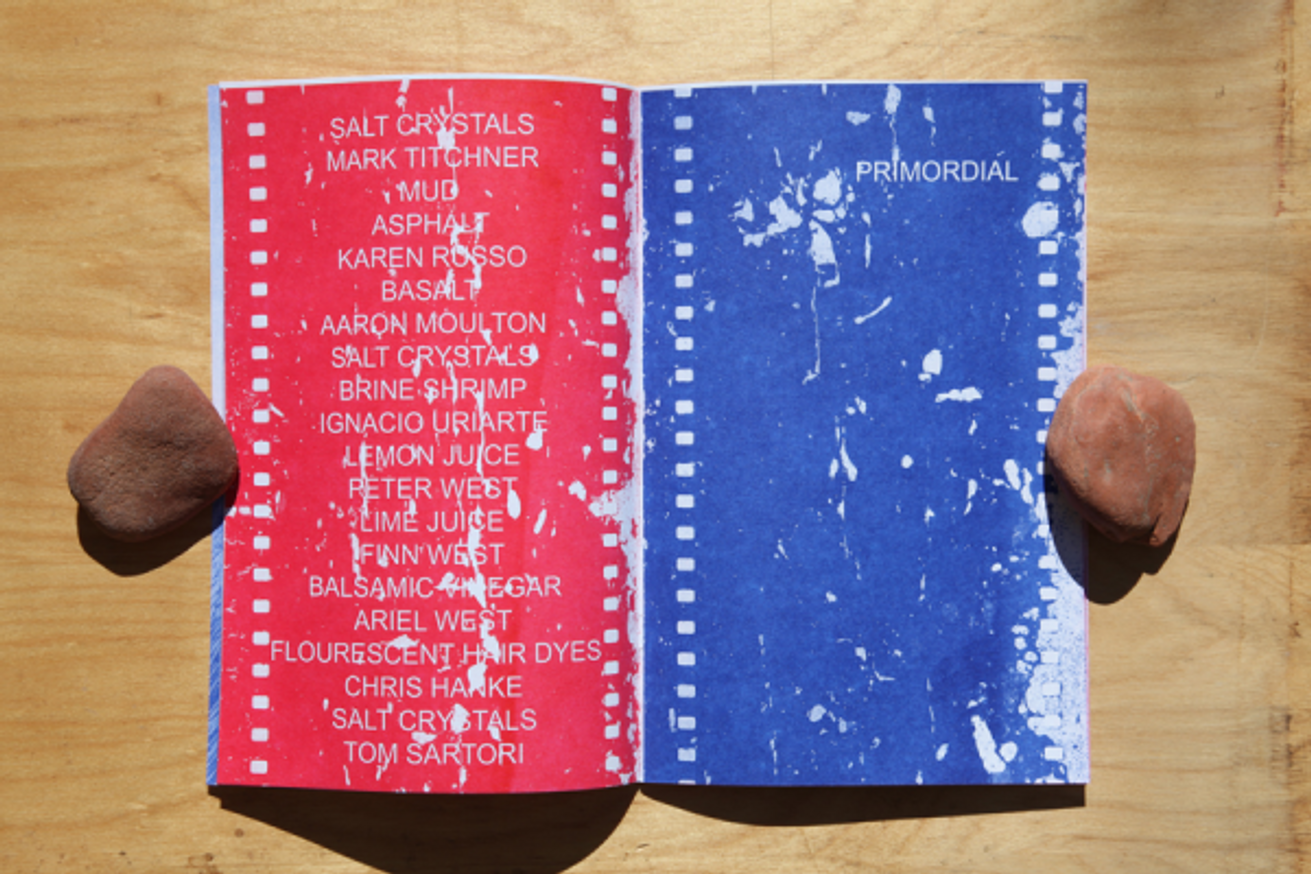 SALT CRYSTALS
MARK TITCHNER
MUD
ASPHALT
KAREN RUSSO
BASALT
AARON MOULTON
SALT CRYSTALS
BRINE SHRIMP
IGNACIO URIARTE
LEMON JUICE
PETER WEST
LIME JUICE
FINN WEST
BALSAMIC VINEGAR
ARIEL WEST
FLOURESCENT HAIR DYES
CHRIS HANKE
SALT CRYSTALS
TOM SARTORI
PRIMORDIAL